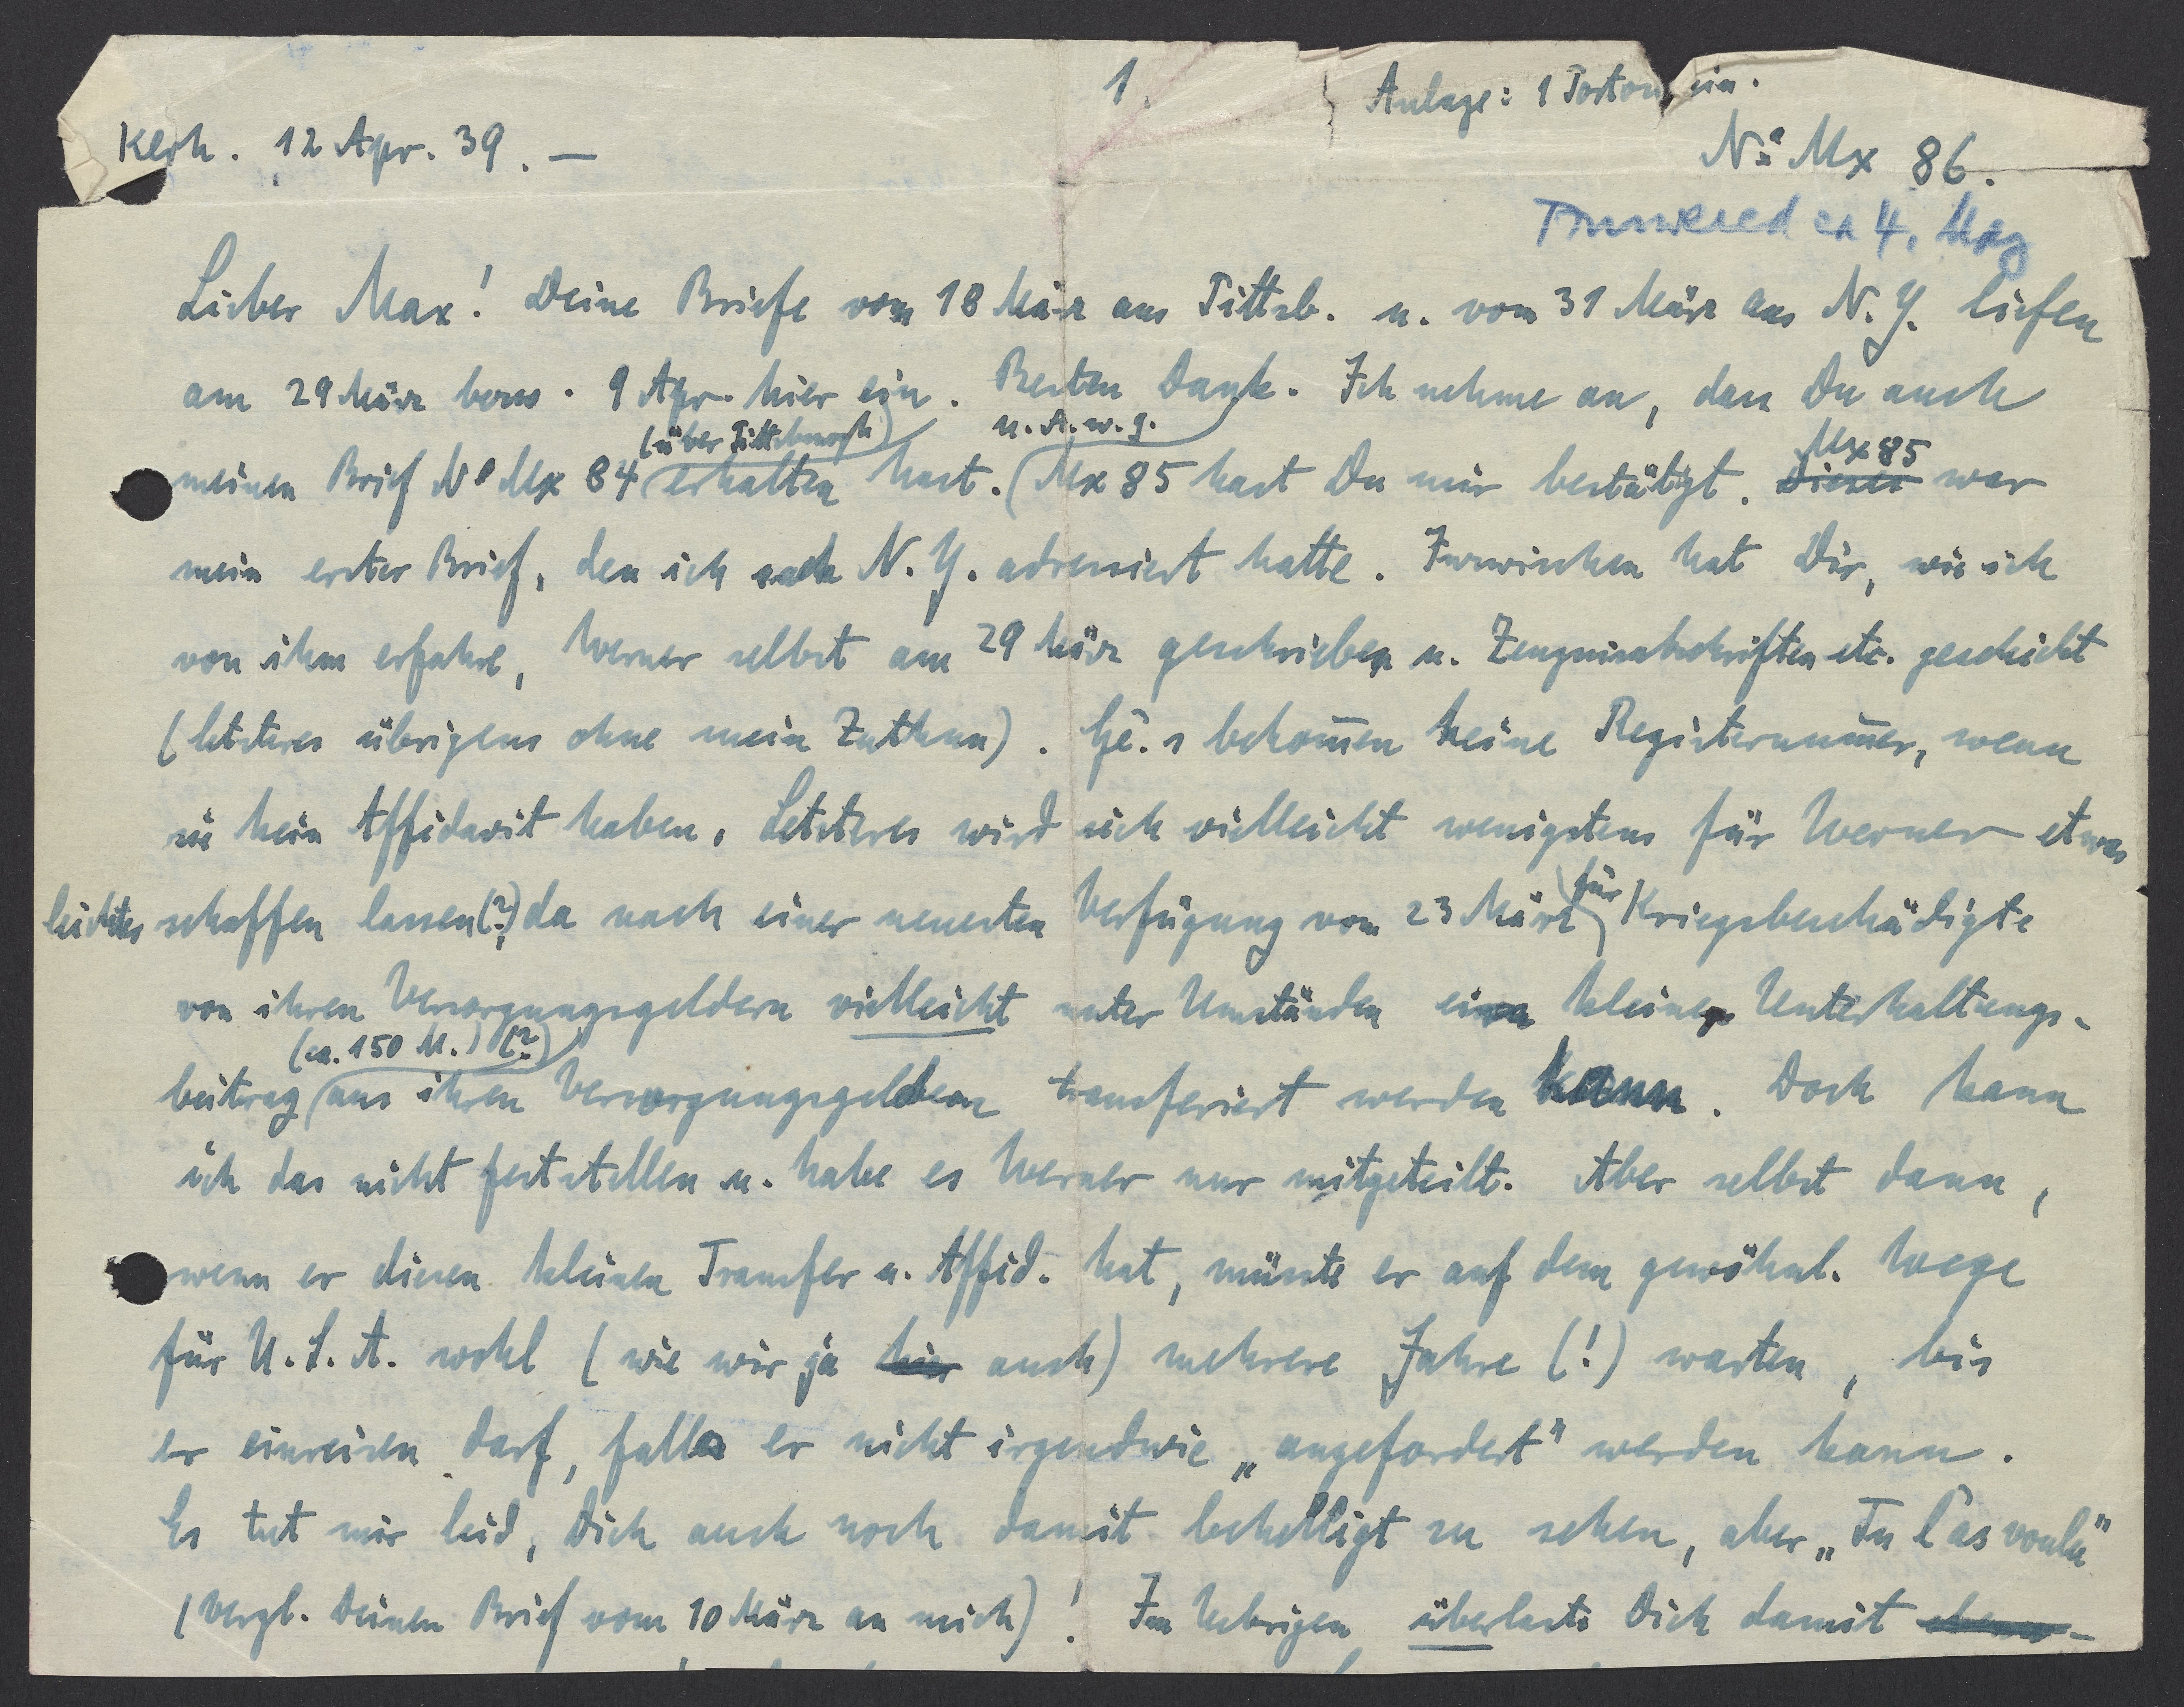 1.
Anlage: 1 Portoschein.
Klrh. 12 Apr. 39. —
No Mx 86.
Answered on 4. May
Lieber Max! Deine Briefe vom 18 März aus Pittsb. u. vom 31 März aus N.Y. liefen
am 29 März bezw. 9 Apr. hier ein. Besten Dank. Ich nehme an, dass Du auch
(über Pittsburgh) u. A. w. g. Mx 85
meinen Brief No Mx 84 erhalten hast. (Mx 85 hast Du mir bestätigt. Dieses war
mein erster Brief, den ich nach N.Y. adressiert hatte. Inzwischen hat Dir, wie ich
von ihm erfahre, Werner selbst am 29 März geschrieben u. Zeugnisabschriften etc. geschickt
(letzteres übrigens ohne mein Zuthun). Ge.s bekom̄en keine Registernum̄er, wenn
sie kein Affidavit haben. Letzteres wird sich vielleicht wenigstens für Werner etwas
leichter schaffen lassen (?), da nach einer neuesten Verfügung vom 23 März für Kriegsbeschädigte
von ihren Versorgungsgeldern vielleicht unter Umständen ein kleiner Unterhaltungs-
(ca. 150 M.) (?)
beitrag aus ihren Versorgungsgeldern transferiert werden kann. Doch kann
ich das nicht feststellen u. habe es Werner nur mitgeteilt. Aber selbst dann,
wenn er diesen kleinen Transfer u. Affid. hat, müsste er auf dem gewöhnl. Wege
für U.S.A. wohl (wie wir ja hier auch) mehrere Jahre (!) warten, bis
er einreisen darf, falls er nicht irgendwie „angefordert" werden kann.
Es tut mir leid, Dich auch noch damit behelligt zu sehen, aber „Tu l'as voulu"
(vergl. Deinen Brief vom 10 März an mich)! Im Uebrigen überlaste Dich damit